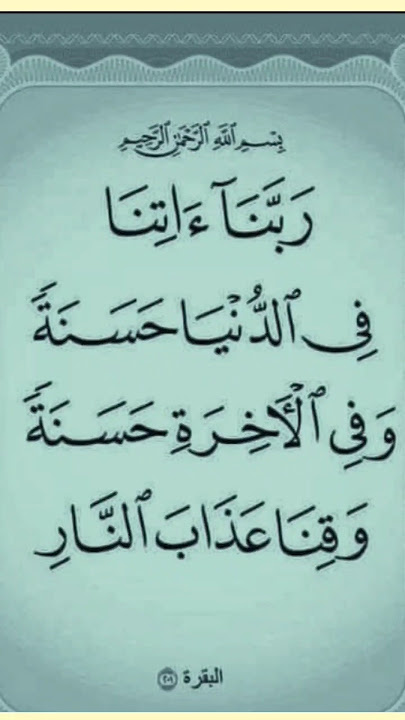 بِسْمِ ٱللَّهِ ٱلرَّحْمَٰنِ ٱلرَّحِيمِ
رَبَّنَآ ءَاتِنَا
فِى ٱلدُّنْيَا حَسَنَةً
وَفِى ٱلْأَخِرَةِ حَسَنَةً
وَقِنَا عَذَابَ ٱلنَّارِ
البقرة ٢٠١